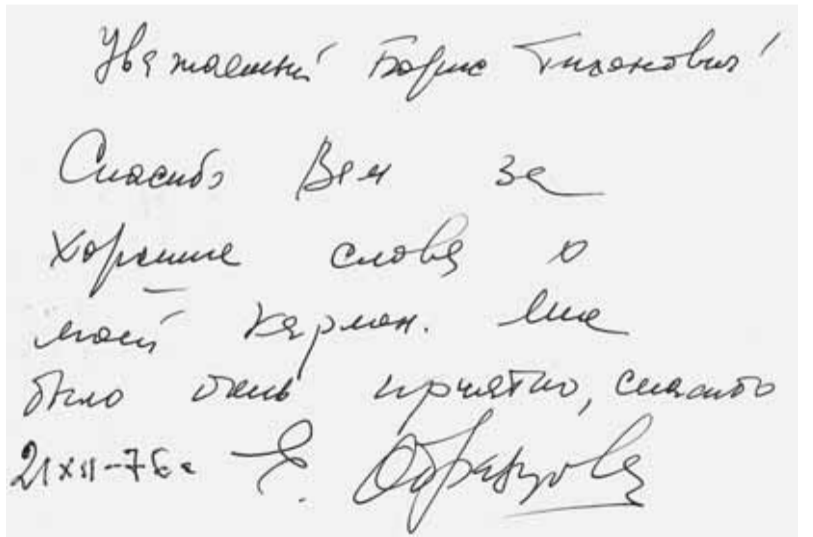 Уважаемый Борис Тихонович!
Спасибо Вам за
хорошие слова о
моей Кармен. Мне
было очень приятно, спасибо
21 XII-76г Е. Образцова